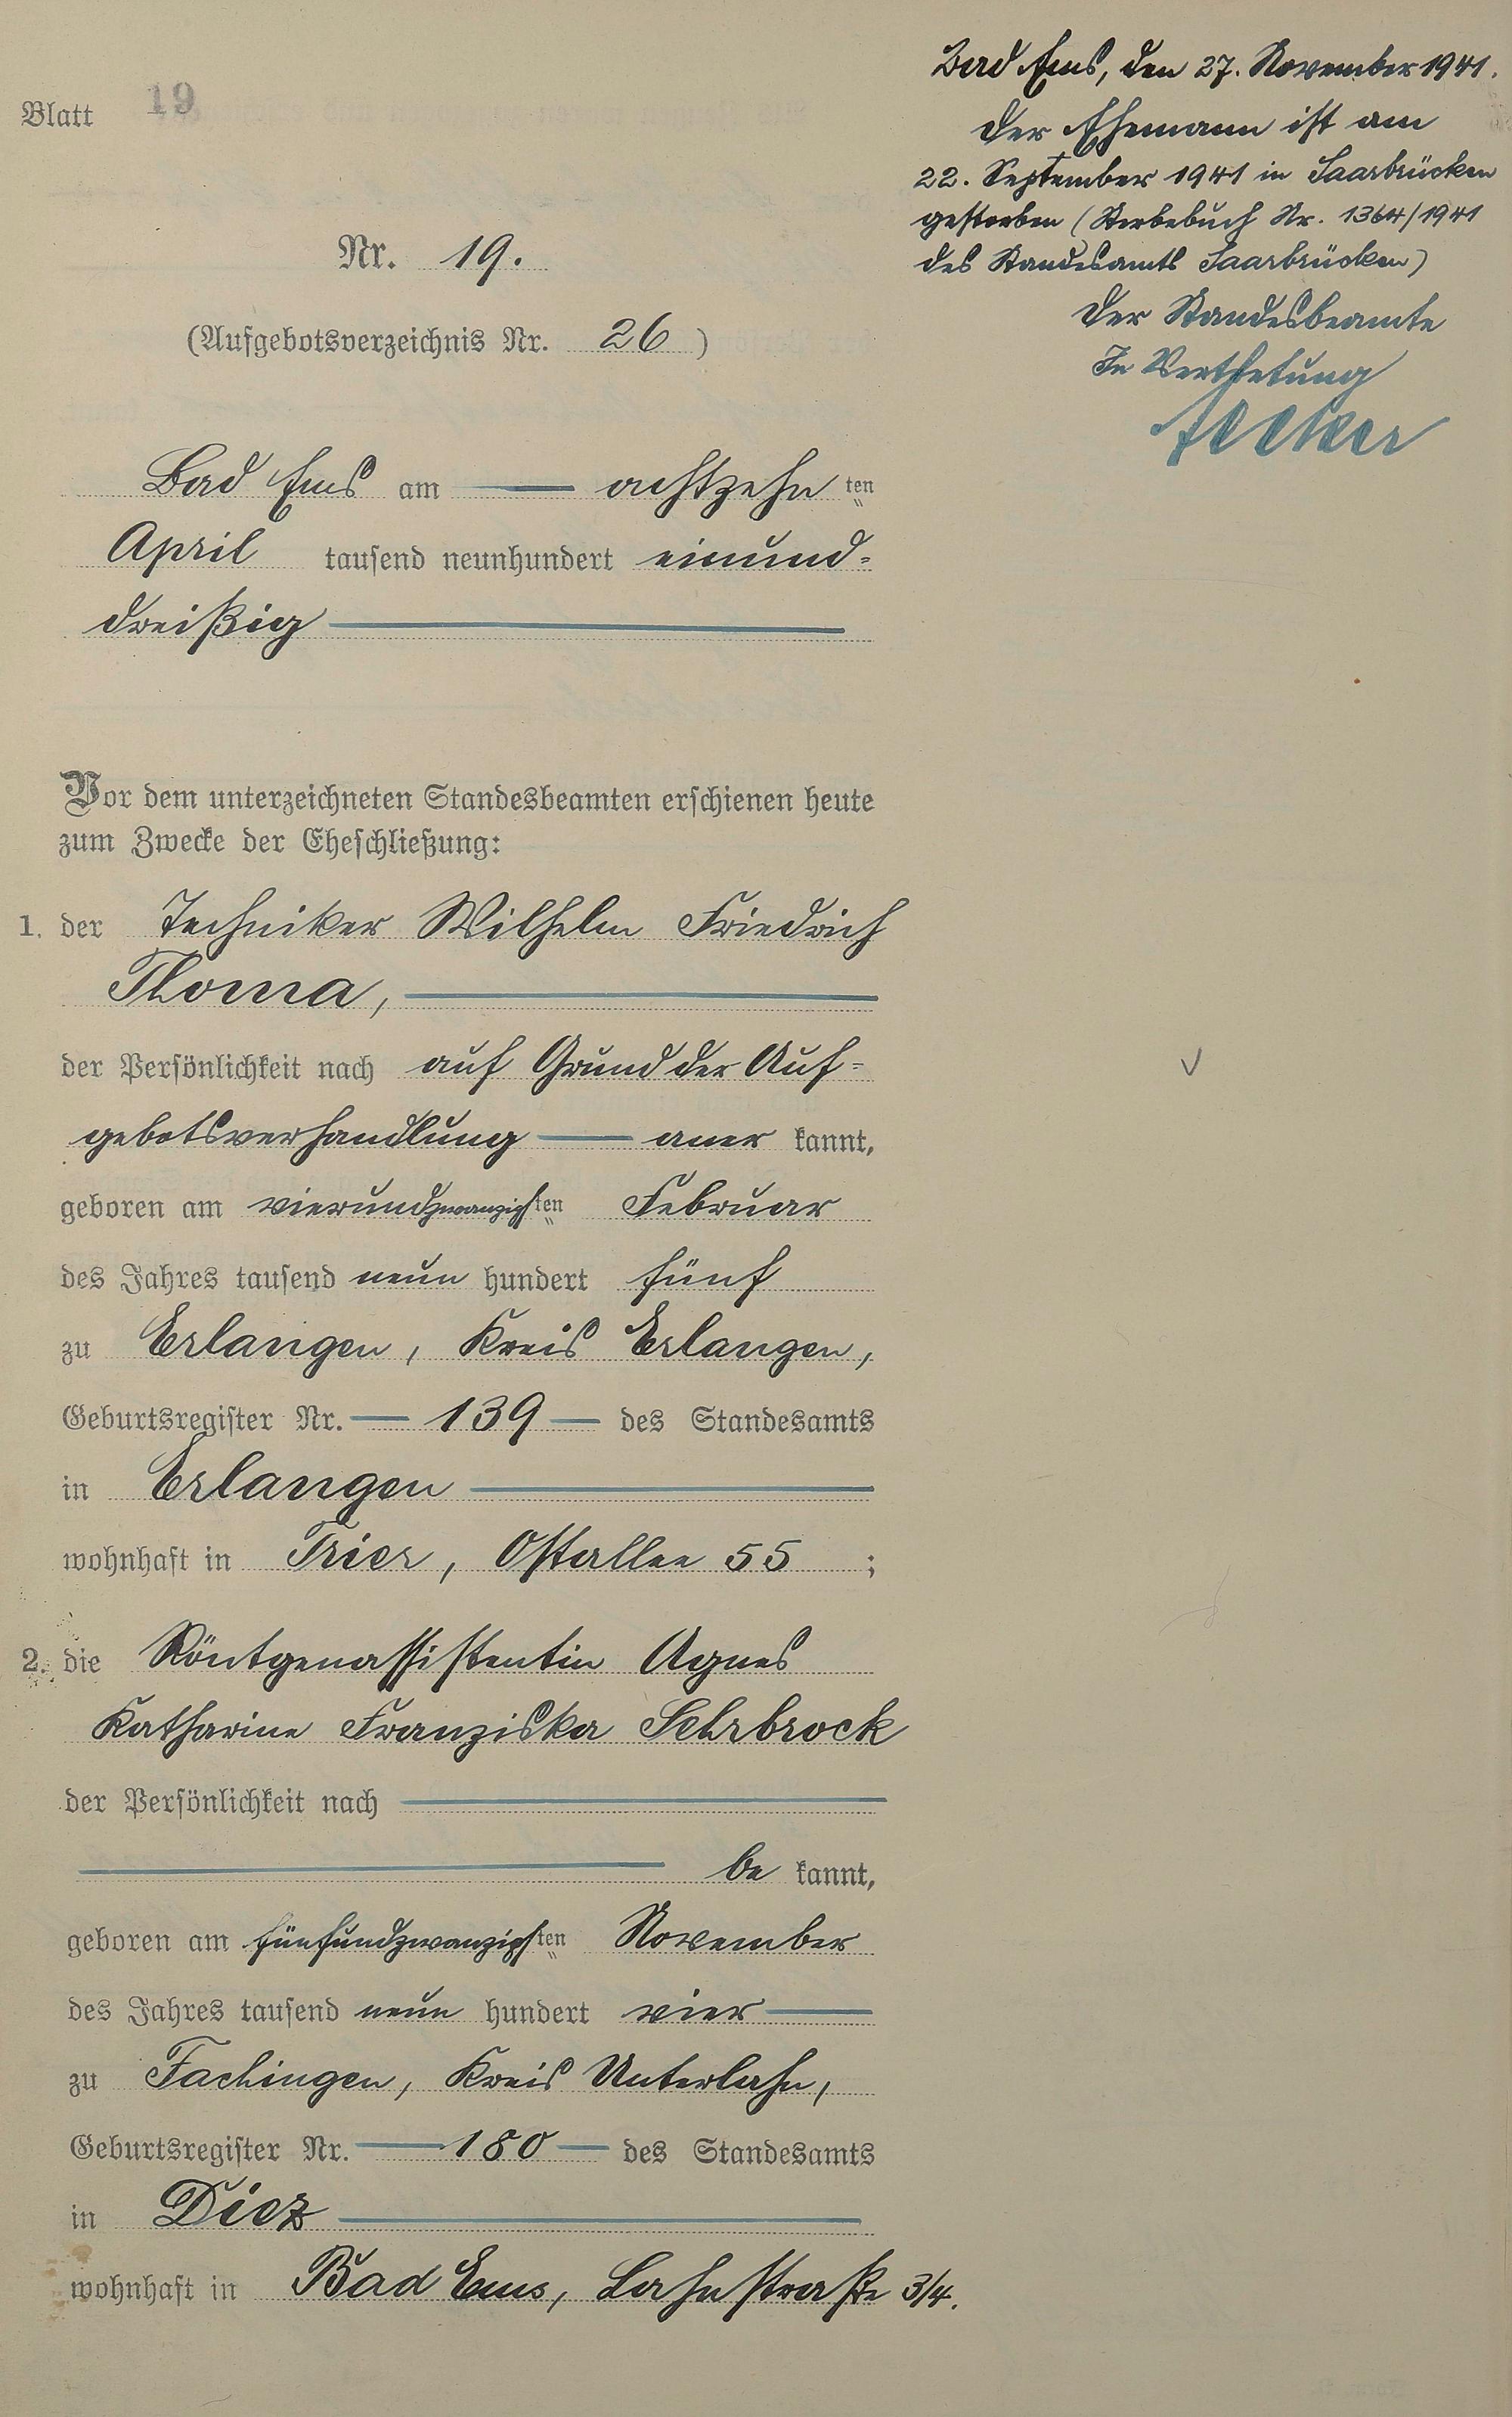 Blatt 19
Nr. 19.
(Aufgebotsverzeichnis Nr. 26 )
Bad Ems am — achtzehn ten
April tausend neunhundert einund-
dreißig —
Vor dem unterzeichneten Standesbeamten erschienen heute
zum Zwecke der Eheschließung:
1. der Techniker Wilhelm Friedrich
Thoma, —
der Persönlichkeit nach auf Grund der Auf-
gebotsverhandlung — aner kannt,
geboren am vierundzwanzigsten Februar
des Jahres tausend neun hundert fünf
zu Erlangen, Kreis Erlangen,
Geburtsregister Nr. — 139 — des Standesamts
in Erlangen —
wohnhaft in Trier, Ostallee 55 ;
2. die Röntgenassistentin Agnes
Katharine Franziska Sehrbrock
der Persönlichkeit nach —
— be kannt,
geboren am fünfundzwanzigsten November
des Jahres tausend neun hundert vier —
zu Fachingen, Kreis Unterlahn,
Geburtsregister Nr. — 180 — des Standesamts
in Diez —
wohnhaft in Bad Ems, Lahnstraße 3/4.
Bad Ems, den 27. November 1941.
Der Ehemann ist am
22. September 1941 in Saarbrücken
gestorben (Sterbebuch Nr. 1364/1941
des Standesamts Saarbrücken)
Der Standesbeamte
In Vertretung